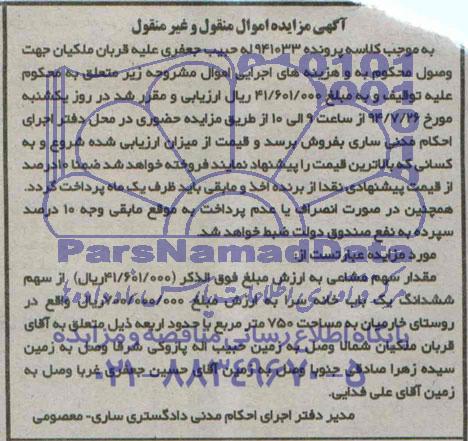 آگهی مزایده اموال منقول و غیر منقول
به موجب کلاسه پرونده ۹۴۱۰۳۳ له حبیب جعفری علیه قربان ملکیان جهت
وصول محکوم به و هزینه های اجرایی اموال مشروحه زیر متعلق به محکوم
علیه توقیف و به مبلغ ۴۱/۶۰۱/۰۰۰ ریال ارزیابی و مقرر شد در روز یکشنبه
مورخ ۹۴/۷/۲۶ از ساعت ۹ الی ۱۰ از طریق مزایده حضوری در محل دفتر اجرای
احکام مدنی ساری بفروش برسد و قیمت از میزان ارزیابی شده شروع و به
کسانی که بالاترین قیمت را پیشنهاد نمایند فروخته خواهد شد ضمنا ۱۰درصد
از قیمت پیشنهادی نقدا از برنده اخذ و مابقی باید ظرف یک ماه پرداخت گردد.
همچنین در صورت انصراف یا عدم پرداخت به موقع مابقی وجه ۱۰ درصد
سپرده به نفع صندوق دولت ضبط خواهد شد.
ParsNamadData
مورد مزایده عبارتست از:
مقدار سهم مشاعی به ارزش مبلغ فوق الذکر (۴۱/۶۰۱/۰۰۰ریال) از سهم
ششدانگ یک باب خانه سرا به ارزش مبلغ ریال واقع در
روستای خارمیان به مساحت ۷۵۰ متر مربع با حدود اربعه ذیل متعلق به آقای
قربان ملکیان شمالا وصل به زمین حبیب اله پازوکی شرقا وصل به زمین
پایگاه اطلاع رسانی مناقصه و مزایده
سیده زهرا صادقی جنوبا وصل به زمین آقای حسین جعفری غربا وصل به
۰۲۱-۸۸۳۴۹۶۷۰-۵
زمین آقای علی فدایی.
مدیر دفتر اجرای احکام مدنی دادگستری ساری- معصومی